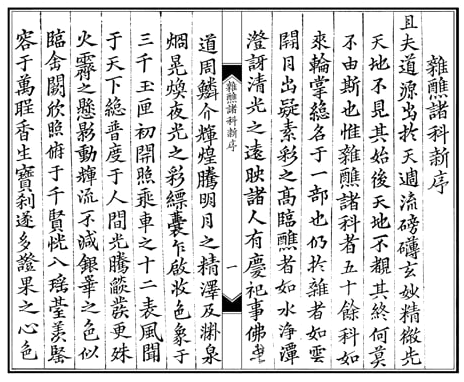 雜醮諸科新序
且夫道源出於天週流磅礴玄妙精微先
天地不見其始後天地不覩其終何莫
不由斯也惟雜醮諸科者五十餘科如
來輪掌總名于一部也仍於雜者如雲
開月出疑素彩之高臨醮者如水淨潭
澄訝清光之遠映諸人有慶祀事佛
雜醮諸科新序
一
道周鱗介輝煌騰明月之精澤及淵泉
烱晃煥夜光之彩縹囊乍啟收色象于
三千玉匣初開照乘車之十二表風聞
于天下總普度于人間光騰燄更殊
火霽之懸影動輝流不減銀華之色似
臨舍闕欣照俯于千賢恍八瑤臺羡鑒
容于萬香生寶刹遂多證果之心色